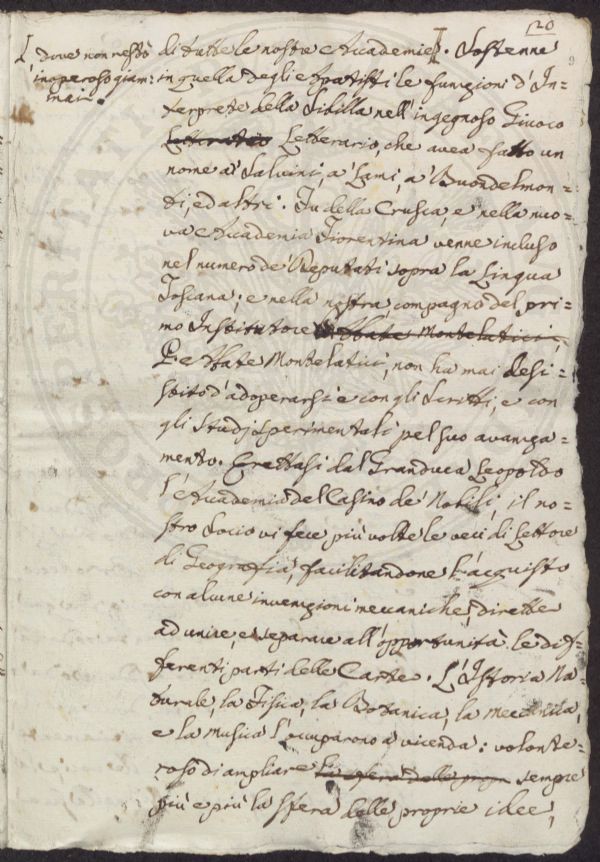 20
[ dove non restò
inoperoso giam=
mai.
di tutte le nostre Accademie[. Sostenne
in quella degli Apatisti le funzioni d'In=
terprete della Sibilla nell'ingegnoso Giuoco
Letterario Letterario, che avea fatto un
nome a' Salvini, a' Lami, a' Buondelmon=
ti, ed altri. In della Crusca, e nella nuo=
va Accademia Fiorentina venne incluso
nel numero de' Deputati sopra la Lingua
Toscana; e nella nostra, compagno del pri=
mo Institutore Abbate Montelatici,
P. Abate Montelatici, non ha mai desi=
stito d'adoperarsi e con gli Scritti, e con
gli Studj sperimentali pel suo avanza=
mento. Erettasi dal Granduca Leopoldo
l'Accademia del Casino de' Nobili, il no=
stro Socio vi fece più volte le veci di Lettore
di Geografia, facilitandone l'acquisto
con alcune invenzioni meccaniche, dirette
ad unire, e separare all'opportunità le dif=
ferenti parti delle Carte. L'Istoria Na=
turale, la Fisica, la Botanica, la meccanica,
e la musica l'occuparono a vicenda: volonte=
roso di ampliare la sfera delle prop sempre
più e più la sfera delle proprie idee,